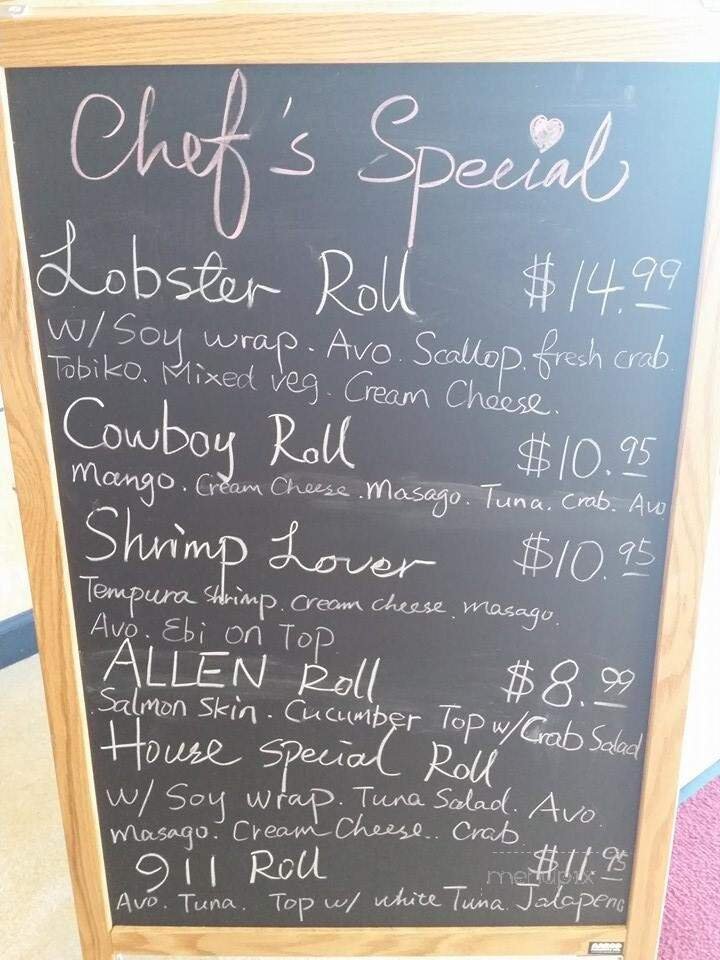 Chef's Special
Lobster Roll $14.99
w/ Soy wrap. Avo. Scallop. fresh crab
Tobiko. Mixed veg. Cream Cheese.
Cowboy Roll $10.95
Mango. Cream Cheese. Masago. Tuna. Crab. Avo
Shrimp Lover $10.95
Tempura shrimp. cream cheese. masago.
Avo. Ebi on Top
ALLEN Roll $8.99
Salmon Skin. Cucumber Top w/ Crab Salad
House special Roll
w/ Soy wrap. Tuna Salad. Avo.
masago. Cream Cheese.. Crab
911 Roll $11.95
menupix
Avo. Tuna. Top w/ white Tuna. Jalapeno